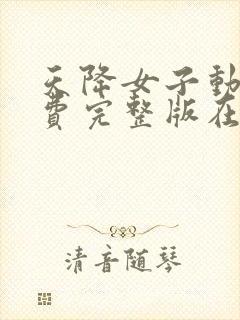 天降女子動
費完整版在
清音随琴